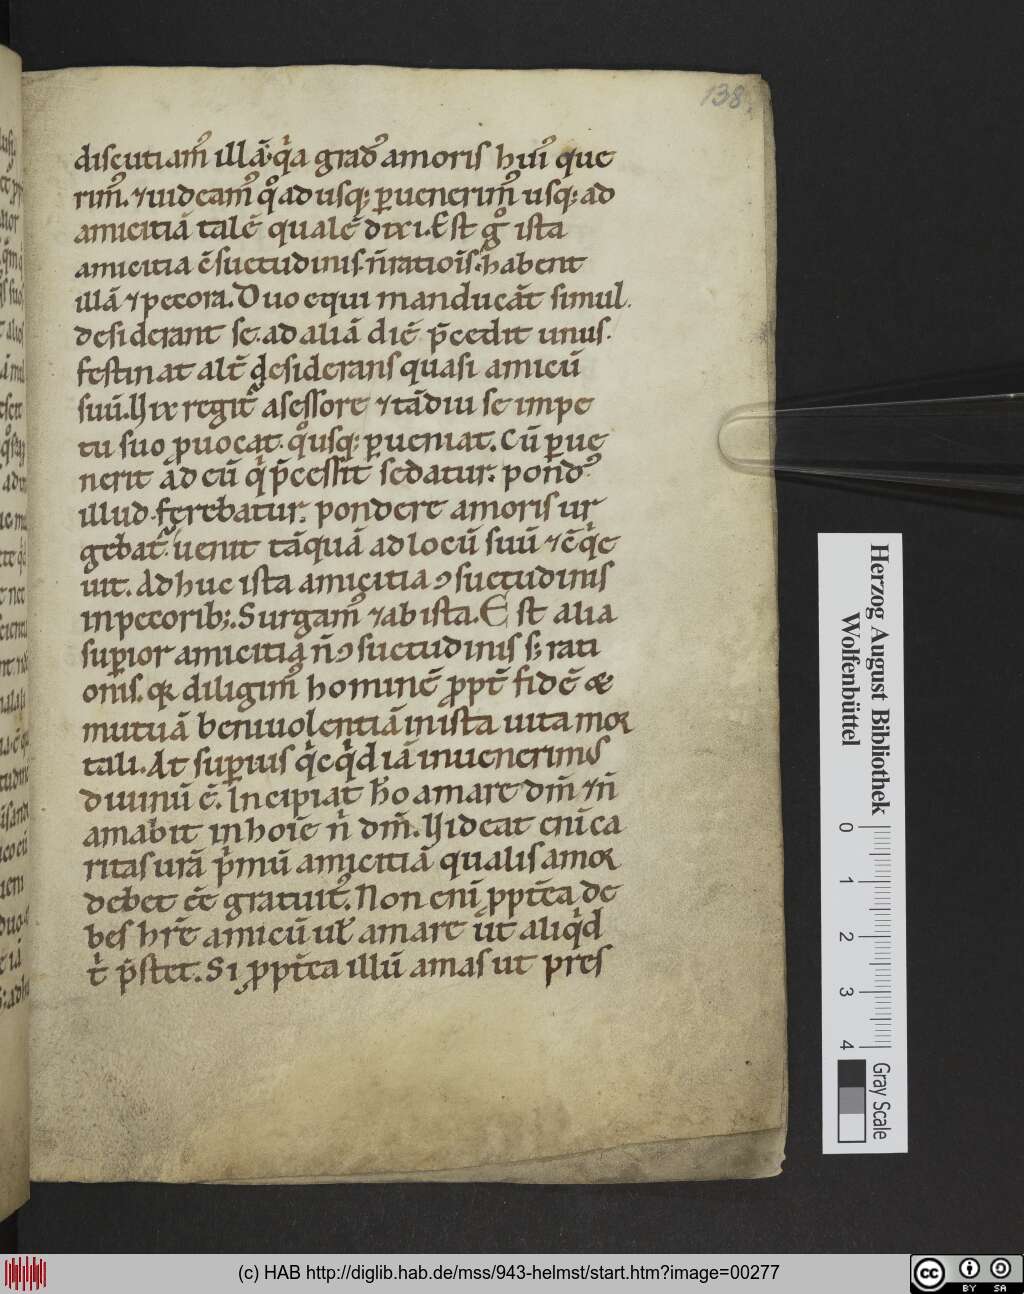 138.
discutiam᷒ illā. qͥa grad᷒ amoris hui᷒ que
rim᷒. ⁊ uideam᷒ qͦ ad usq; ꝑuenerim᷒ usq; ad
amicitiā talē qualē dixi. Est gͦ ista
amicitia c̄suetudinis. n̄ rationis̄. habent
illā ⁊ pecora. Duo equi manducāt simul.
desiderant se. ad aliā diē p̄cedit unus.
festinat alt̄ desiderans quasi amicū
suū. Vix regit᷑ a sessore ⁊ tādiu se impe
tu suo ꝓuocat. qͦusq; ꝑueniat. Cū ꝑue
nerit ad eū qͥ p̄cessit sedatur. pond᷒
illud. ferebatur. pondere amoris ur
gebat᷑. uenit tāquā ad locū suū ⁊ c̄qͥe
uit. Adhuc ista amicitia ꝯsuetudinis
in pecorib;. Surgam᷒ ⁊ ab ista. Est alia
suꝑior amicitia n̄ ꝯsuetudinis s; rati
onis. qꝛ diligim᷒ hominē ꝓpt̄ fidē &
mutuā beniuolentiā in ista uita moꝛ
tali. At suꝑius qͥcqͥd iā inuenerim᷒
diuinū ē. Incipiat hō amare dm̄ ⁊ n̄
amabit in hoīe n̄ dm̄. Videat enī ca
ritas urā pͥmū amicitiā qualis amoꝛ
debet eē gratuit᷒. Non enī ꝓpt̄ea de
bes hr̄e amicū uł amare ut aliqͥd
tͥ p̄stet. Si ꝓpt̄ea illū amas ut pres
Herzog August Bibliothek
Wolfenbüttel
0 1 2 3 4
Gray Scale
(c) HAB http://diglib.hab.de/mss/943-helmst/start.htm?image=00277
cc BY SA